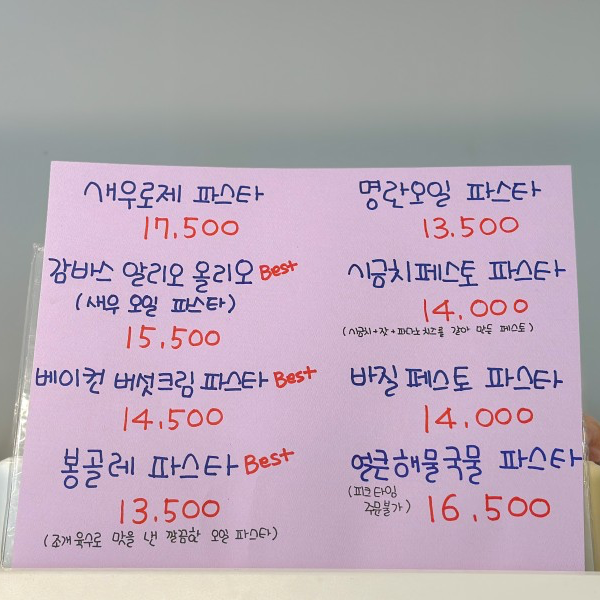 새우로제 파스타
17.500
감바스 알리오 올리오 Best
(새우 오일 파스타)
15.500
베이컨 버섯크림 파스타 Best
14.500
봉골레 파스타 Best
13.500
(조개 육수로 맛을 낸 깔끔한 오일 파스타)
명란오일 파스타
13.500
시금치페스토 파스타
14.000
(시금치+잣+파다노치즈를 갈아 만든 페스토)
바질페스토 파스타
14.000
얼큰해물국물 파스타
(피크타임
주문불가)
16.500